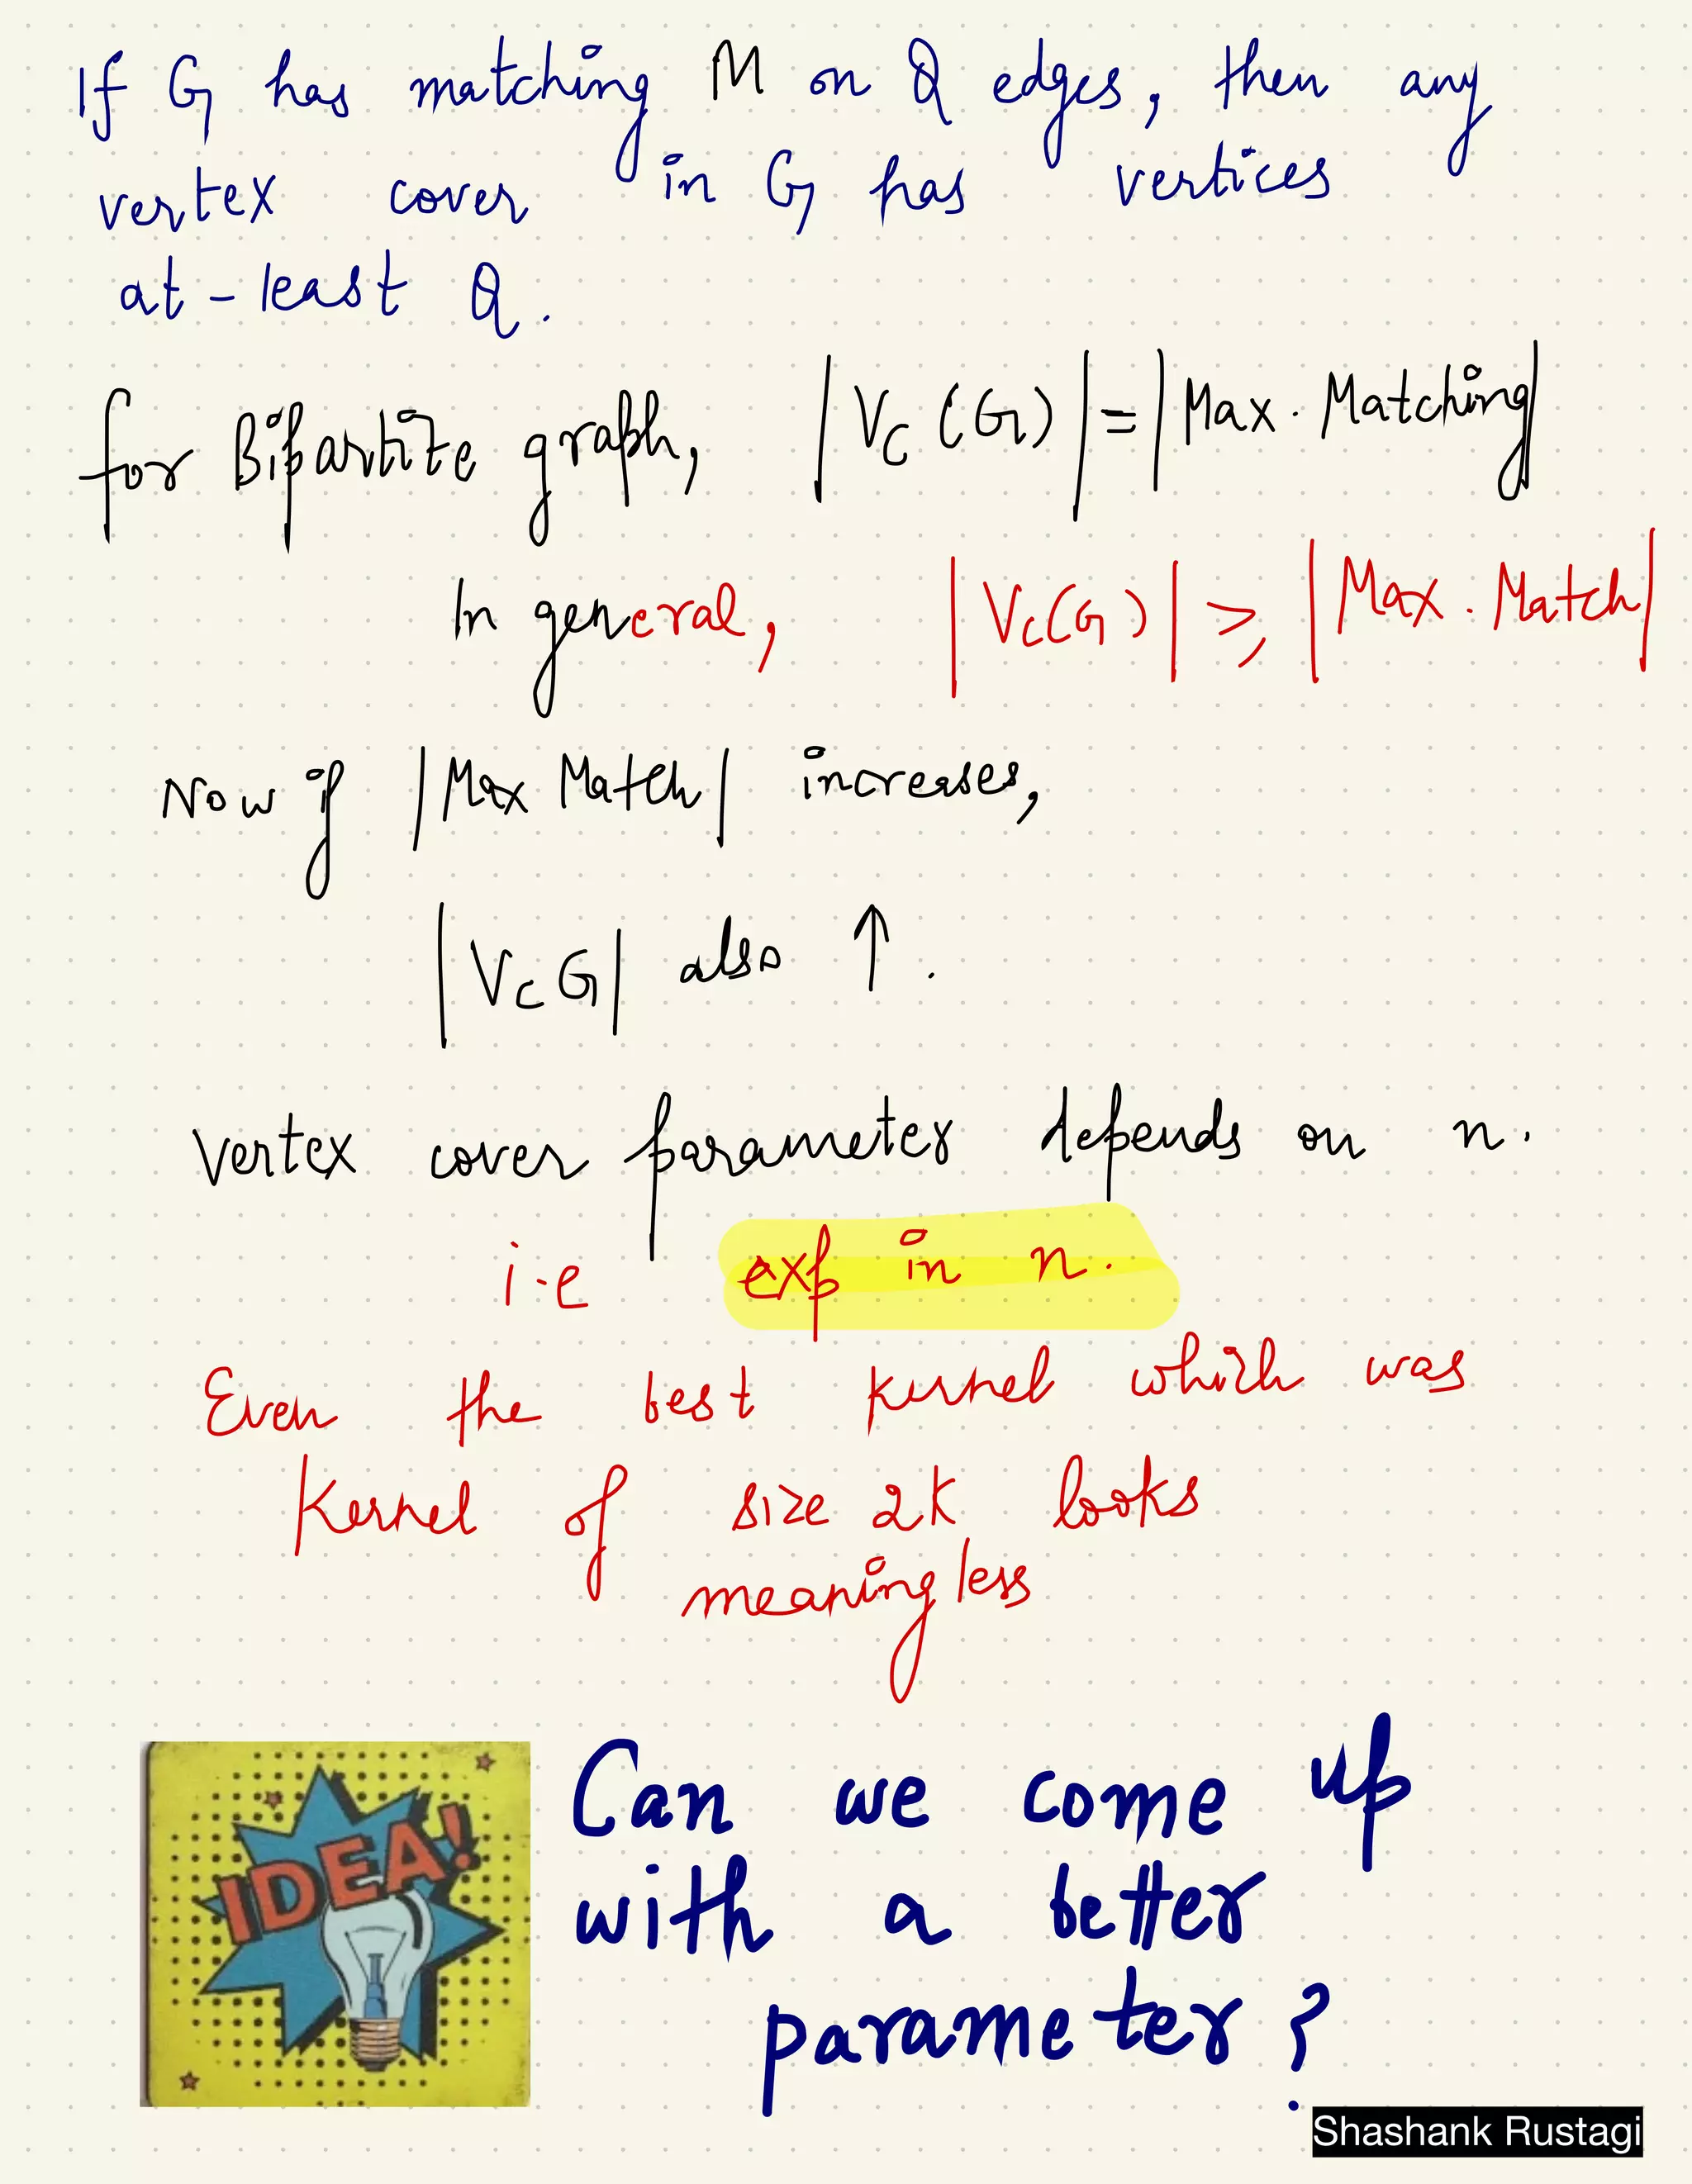 If G has matching M on Q edges, then any
vertex cover in G has vertices
at-least Q.
for Bipartite graph, |Vc(G)| = |Max. Matching|
In general, |Vc(G)| ⩾ |Max. Match|
Now if |Max Match| increases,
|Vc G| also ↑.
Vertex cover parameter depends on n.
i.e exp in n.
Even the best kernel which was
Kernel of size 2k looks
meaningless
IDEA!
Can we come up
with a better
parameter?
Shashank Rustagi